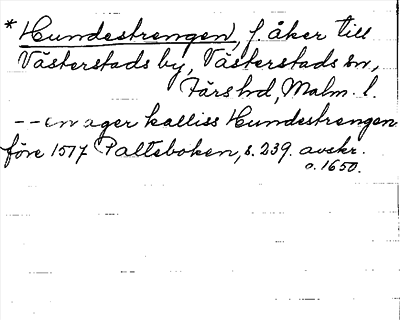 * Hundestrengen, f. åker till
Västerstads by, Västerstads sn,
Färs hd, Malm. l.
-- en ager kalliss Hundestrengen
före 1517 Palteboken, s. 239. avskr.
o. 1650.